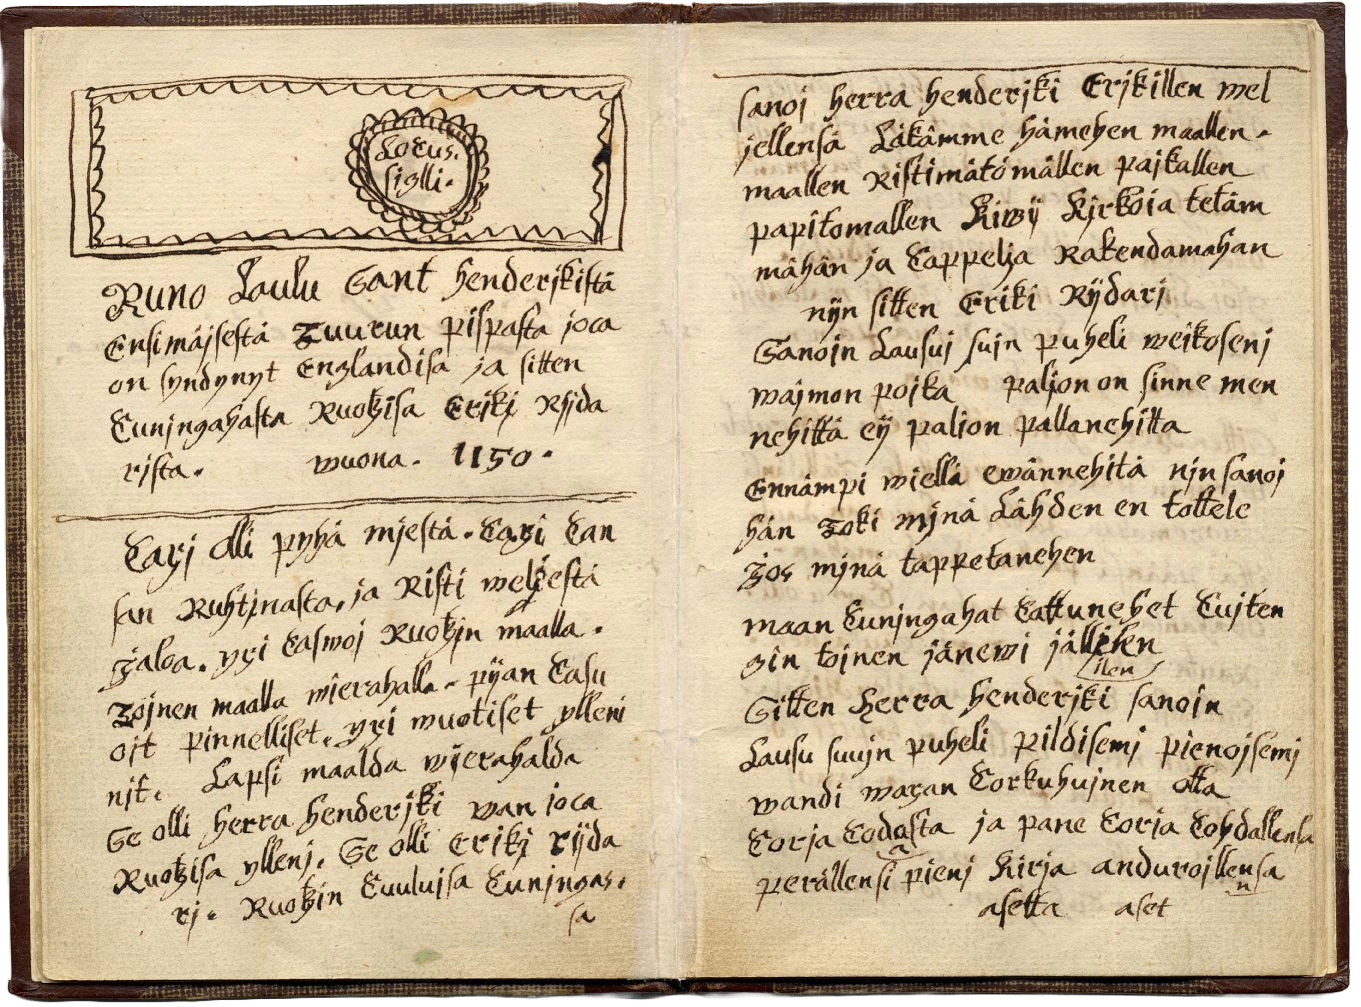 Locus.
siglli.
Runo Laulu Sant henderjkistä
Ensimäjsestä Tuurun pispasta joca
on syndynyt Englandisa ja sitten
Cunjngahasta Ruotzisa Erikj Rijda
rista. wuona. 1150.
Caxj olli pyhä mjestä. Caxi Can
san Ruhtjnasta, ja Risti weljestä
Jaloa. yxi Caswoj Ruotzjn maalla.
Tojnen maalla wierahalla. pijan Casu
ojt pinnelliset, yxi wuotiset ylleni
njt. Lapsi maalda wierahalda
Se olli herra henderjki wan joca
Ruotzisa yllenj. Se olli Erikj rijda
rj. Ruotzin Cuuluisa Cunjngas.
sa
sanoj herra henderjki Erjkillen wel
jellensä Läkämme hämehen maallen.
maallen Ristimätömällen pajkallen
papitomallen Kiwij Kjrkoia tetäm
mähän ja Cappelja Rakendamahan
nijn sitten Eriki Rijdarj
Sanojn Lausuj sujn puheli weikosenj
wajmon poika paljon on sinne men
nehittä eij paljon pallanehitta
Ennämpi wiellä ewännehitä njn sanoj
hän Toki mjnä Lähden en tottele
Jos mjnä tappetanehen
maan Cunjngahat Cattunehet Cujten
gin tojnen jänewi jällihen
ilen
Sitten herra henderjki sanojn
Lausu suujn puheli pildisemj pienojsemj
wandi waxan Corkuhujnen otta
Corja Codasta ja pane Corja Cohdallensa
a
perällensi pienj Kirja andurojllensa
n
asetta aset